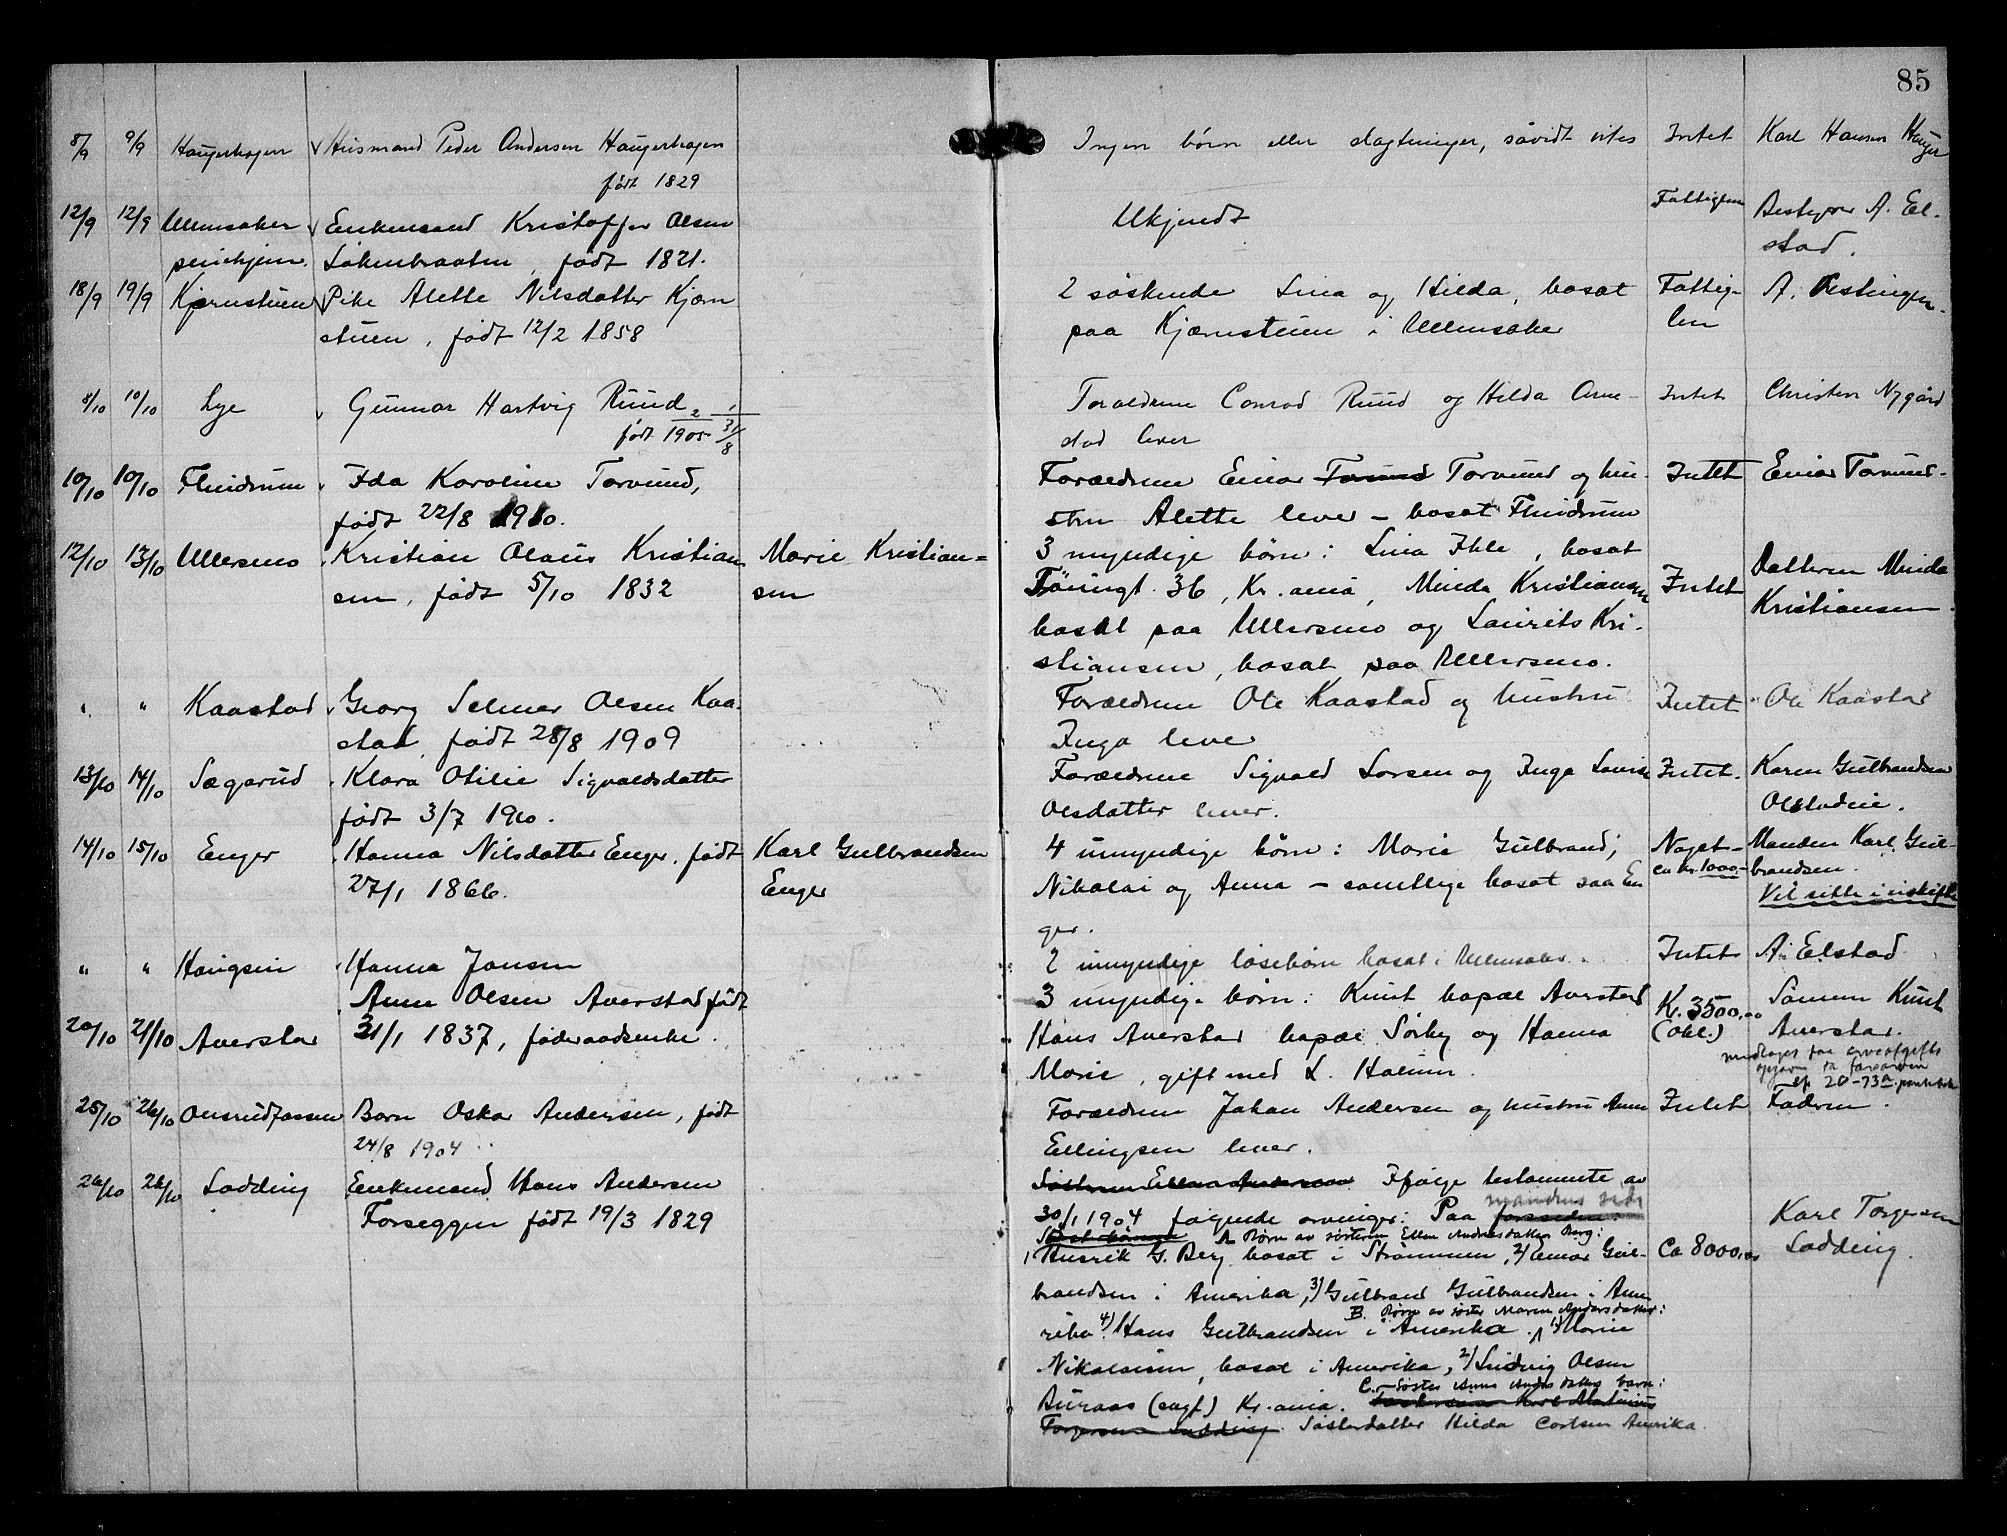 85
8/9 9/9 Haugerhagen Husmand Peder Andersen Haugerhagen
født 1829
Ingen børn eller slagtninger, såvidt vites Intet Karl Hansen Hauger
12/9 12/9 Ullensaker Enkemand Kristoffer Olsen
pleiehjem. Løkenbraaten, født 1821.
Ukjendt Fattiglem Bestyrer A. El-
stad.
18/9 19/9 Kjernstuen Pike Alette Nilsdatter Kjærn
stuen, født 12/2 1858
2 søskende Lina og Hilda, bosat Fattig- A.
paa Kjærnstuen i Ullensaker lem
8/10 10/10 Lye Gunnar Hartvig Ruud
født 1905 31/8
Forældrene Conrad Ruud og Hilda Arne- Intet Christen Nygård
stad lever
10/10 10/10 Fluidrum Ida Karoline Torvund,
født 22/8 1910.
Forældrene Einar Torvund og hu- Intet Einar Torvund.
stru Alette lever – bosat Fluidrum
12/10 13/10 Ullersmo Kristian Olaus Kristian Marie Kristian=
sen, født 5/10 1832 sen
3 myndige børn: Lina Ihle, bosat
Tøiengt. 36, Kr.ania, Minda Kristiansen Intet Datteren Minda
bosat paa Ullersmo og Laurits Kri- Kristiansen.
stiansen, bosat paa Ullersmo.
" " Kaastad Georg Selmer Olsen Kaa-
stad, født 28/8 1909
Forældrene Ole Kaastad og hustru Intet Ole Kaastad
Inga lever
13/10 14/10 Sægarud Klara Otilie Sigvaldsdatter
født 3/7 1910.
Forældrene Sigvald Larsen og Inga Lovise Intet. Karen Gulbrandsen
Olsdatter lever. Olstadeie.
14/10 15/10 Enger Hanna Nilsdatter Enger, født Karl Gulbrandsen
27/1 1866. Enger
4 umyndige børn: Marie Gulbrand, Noget – Manden Karl Gul-
Nikolai og Anna – samtlige bosat paa En ca kr. 1000,- brandsen.
ger. Vil sitte i uskifte
" " Haugsein Hanna Jansen
2 umyndige løsebørn bosat i Ullensaker. Intet A. Elstad
20/10 21/10 Averstad Anne Olsen Averstad født
31/1 1837, føderaadsenke.
3 myndige børn: Knut bopæl Averstad Kr. 3500,00 Sønnen Knut
Hans Averstad bopæl Sørby og Hanna (Obl.) Averstad.
Marie, gift med L. Holum.
25/10 26/10 Onsrudfossen Barn Oskar Andersen, født
24/8 1904
Forældrene Johan Andersen og hustru Anne Intet Faderen.
Ellingsen lever.
26/10 26/10 Ladding Enkemand Hans Andersen
Forseggen født 19/3 1829
Søsteren Ellen Andersen Ifølge testamente av
30/1 1904 følgende arvinger: Paa mandens side
A Børn av søsteren Ellen Andersdatter Berg:
1 Henrik G. Berg bosat i Strømmen, 2) Einar Gul- Ca 8000,00 Karl Torgersen
Ladding.
brandsen i Amerika, 3) Gulbrand Gulbrandsen i Ame
B. Børn av søster Maren Andersdatter:
rika 4) Hans Gulbrandsen i Amerika. 1) Marie
Nikolaisen, bosat i Amerika, 2) Ludvig Olsen
C. Søster Anne Andersdatters barn:
Buraas (ugf.) Kr.ania.
Søsterdatter Hilda Carlsen Amerika.